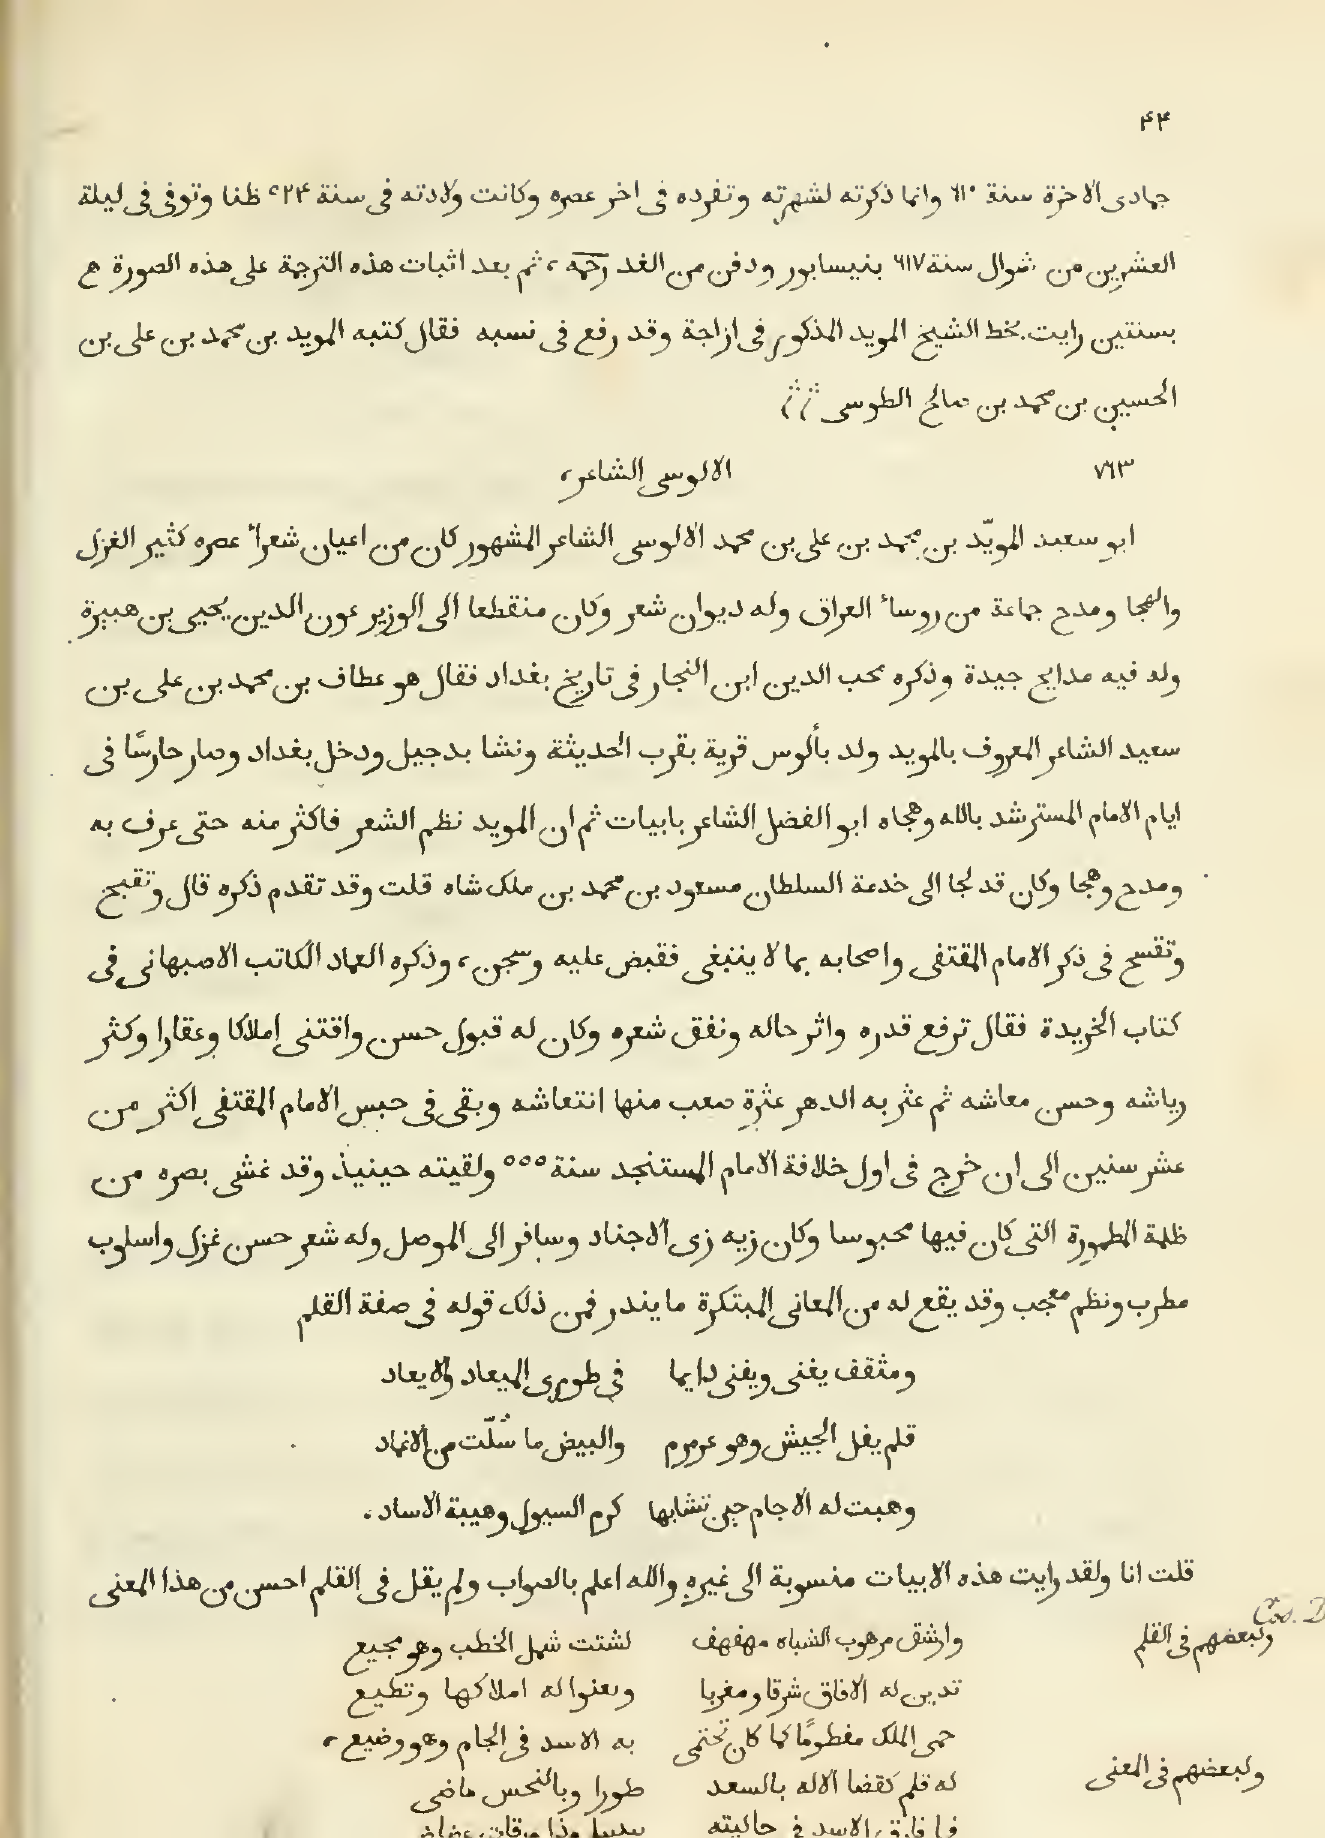 ۴۴
جمادى الاخرة سنة ٦١٠ وانما ذكرته لشهرته وتفرده فى اخر عصره وكانت ولادته فى سنة ٥٢۴ ظنا وتوفى فى ليلة
العشرين من شوال سنة ٦١٧ بنيسابور ودفن من الغد رحمه، ثم بعد اثبات هذه الترجمة على هذه الصورة
بسنتين رايت بخط الشيخ المويد المذكور فى ازاجة وقد رفع فى نسبه فقال كتبه المويد بن محمد بن على بن
الحسين بن محمد بن صالح الطوسى
٧٦٣ الالوسى الشاعر،
ابو سعيد المويّد بن محمد بن على بن محمد الالوسى الشاعر المشهور كان من اعيان شعرأ عصره كثير الغزل
والهجا ومدح جماعة من روسأ العراق وله ديوان شعر وكان منقطعا الى الوزير عون الدين يحيى بن هبيرة
وله فيه مدايح جيدة وذكره محب الدين ابن النجار فى تاريخ بغداد فقال هو عطاف بن محمد بن على بن
سعيد الشاعر المعروف بالمويد ولد بألوس قرية بقرب الحديثة ونشا بدجيل ودخل بغداد وصار حارسًا فى
ايام الامام المسترشد بالله وهجاه ابو الفضل الشاعر بابيات ثم ان المويد نظم الشعر فاكثر منه حتى عرف به
ومدح وهجا وكان قد لجا الى خدمة السلطان مسعود بن محمد بن ملك شاه قلت وقد تقدم ذكره قال وتقبح
وتفسح فى ذكر الامام المقتفى واصحابه بما لا ينبغى فقبض عليه وسجن، وذكره العماد الكاتب الاصبهانى فى
كتاب الخريدة فقال ترفع قدره واثر حاله ونفق شعره وكان له قبول حسن واقتنى املاكا وعقارا وكثر
رياشه وحسن معاشه ثم عثر به الدهر عثرة صعب منها انتعاشه وبقى فى حبس الامام المقتفى اكثر من
عشر سنين الى ان خرج فى اول خلافة الامام المستنجد سنة ٥٥٥ ولقيته حينيذ وقد غشى بصره من
ظلمة المطمورة التى كان فيها محبوسا وكان زيه زى الاجناد وسافر الى الموصل وله شعر حسن غزل واسلوب
مطرب ونظم معجب وقد يقع له من المعانى المبتكرة ما يندر فمن ذلك قوله فى صفة القلم
ومثقف يغنى ويفنى دايما فى طورى الميعاد والايعاد
قلم يفل الجيش وهو عرمرم والبيض ما سُلّت من الاغماد
وهبت له الاجام حين نشابها كرم السيول وهيبة الاساد،
قلت انا ولقد رايت هذه الابيات منسوبة الى غيره والله اعلم بالصواب ولم يقل فى القلم احسن من هذا المعنى
Cod. D
ولبعضهم فى القلم وارشق مرهوب الشباه مهفهف لشتت شمل الخطب وهو جميع
تدين له الافاق شرقا ومغربا وبعنوا له املاكها وتطيع
حمى الملك مفطومًا كما كان تحتمى به الاسد فى الجام وهو وضيع،
ولبعضهم فى المعنى له قلم كقضا الاله بالسعد طورا وبالنحس ماضى
فما فارق الاسد فى حاليته